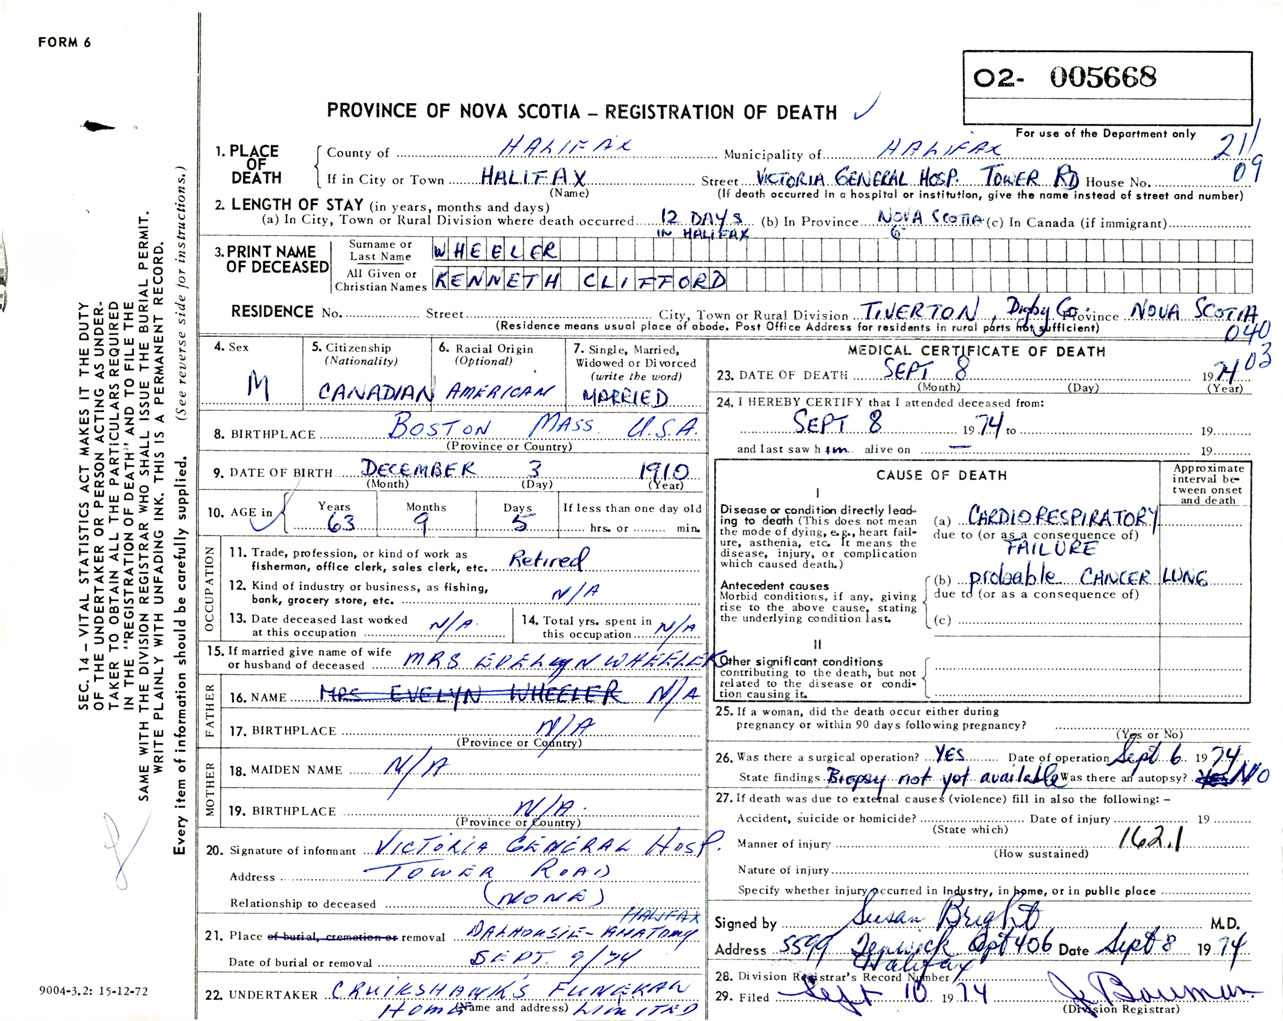 FORM 6
O2- 005668
PROVINCE OF NOVA SCOTIA – REGISTRATION OF DEATH
For use of the Department only
211
09
1. PLACE OF DEATH
County of HALIFAX Municipality of HALIFAX
If in City or Town HALIFAX Street VICTORIA GENERAL HOSP. TOWER RD House No.
(Name) (If death occurred in a hospital or institution, give the name instead of street and number)
2. LENGTH OF STAY (in years, months and days)
(a) In City, Town or Rural Division where death occurred 12 DAYS IN HALIFAX (b) In Province NOVA SCOTIA (c) In Canada (if immigrant)
3. PRINT NAME OF DECEASED
Surname or Last Name WHEELER
All Given or Christian Names KENNETH CLIFFORD
RESIDENCE No. Street City, Town or Rural Division TIVERTON, Digby Co. Province NOVA SCOTIA
(Residence means usual place of abode. Post Office Address for residents in rural parts not sufficient)
040
03
4. Sex M
5. Citizenship (Nationality) CANADIAN
6. Racial Origin (Optional) AMERICAN
7. Single, Married, Widowed or Divorced (write the word) MARRIED
8. BIRTHPLACE BOSTON MASS. U.S.A.
(Province or Country)
9. DATE OF BIRTH DECEMBER 3 1910
(Month) (Day) (Year)
10. AGE in Years 63 Months 9 Days 5 If less than one day old hrs. or min.
OCCUPATION
11. Trade, profession, or kind of work as fisherman, office clerk, sales clerk, etc. Retired
12. Kind of industry or business, as fishing, bank, grocery store, etc. N/A
13. Date deceased last worked at this occupation N/A
14. Total yrs. spent in this occupation N/A
15. If married give name of wife or husband of deceased MRS EVELYN WHEELER
FATHER
16. NAME MRS EVELYN WHEELER N/A
17. BIRTHPLACE N/A
(Province or Country)
MOTHER
18. MAIDEN NAME N/A
19. BIRTHPLACE N/A
(Province or Country)
20. Signature of informant VICTORIA GENERAL HOSP.
Address TOWER ROAD
Relationship to deceased (NONE)
21. Place of burial, cremation or removal DALHOUSIE-ANATOMY HALIFAX
Date of burial or removal SEPT. 9/74
22. UNDERTAKER CRUIKSHANK'S FUNERAL HOME LIMITED
(Name and address)
MEDICAL CERTIFICATE OF DEATH
23. DATE OF DEATH SEPT 8 1974
(Month) (Day) (Year)
24. I HEREBY CERTIFY that I attended deceased from:
SEPT 8 1974 to 19
and last saw him alive on — 19
CAUSE OF DEATH
Approximate interval between onset and death
I
Disease or condition directly leading to death (This does not mean the mode of dying, e.g., heart failure, asthenia, etc. It means the disease, injury, or complication which caused death.)
(a) CARDIORESPIRATORY FAILURE
due to (or as a consequence of)
Antecedent causes
Morbid conditions, if any, giving rise to the above cause, stating the underlying condition last.
(b) probable CANCER LUNG
due to (or as a consequence of)
(c)
II
Other significant conditions contributing to the death, but not related to the disease or condition causing it.
25. If a woman, did the death occur either during pregnancy or within 90 days following pregnancy?
(Yes or No)
26. Was there a surgical operation? YES Date of operation Sept 6 1974
State findings Biopsy not yet available Was there an autopsy? Yes NO
27. If death was due to external causes (violence) fill in also the following: –
Accident, suicide or homicide? Date of injury 19
(State which)
Manner of injury 162.1
(How sustained)
Nature of injury
Specify whether injury occurred in Industry, in home, or in public place
Signed by Susan Bright M.D.
Address 5599 Fenwick Apt 406 Halifax Date Sept 8 1974
28. Division Registrar's Record Number
29. Filed Sept 10 1974
(Division Registrar)
SEC. 14 – VITAL STATISTICS ACT MAKES IT THE DUTY
OF THE UNDERTAKER OR PERSON ACTING AS UNDER-
TAKER TO OBTAIN ALL THE PARTICULARS REQUIRED
IN THE "REGISTRATION OF DEATH" AND TO FILE THE
SAME WITH THE DIVISION REGISTRAR WHO SHALL ISSUE THE BURIAL PERMIT.
WRITE PLAINLY WITH UNFADING INK. THIS IS A PERMANENT RECORD.
Every item of information should be carefully supplied. (See reverse side for instructions.)
9004-3.2: 15-12-72